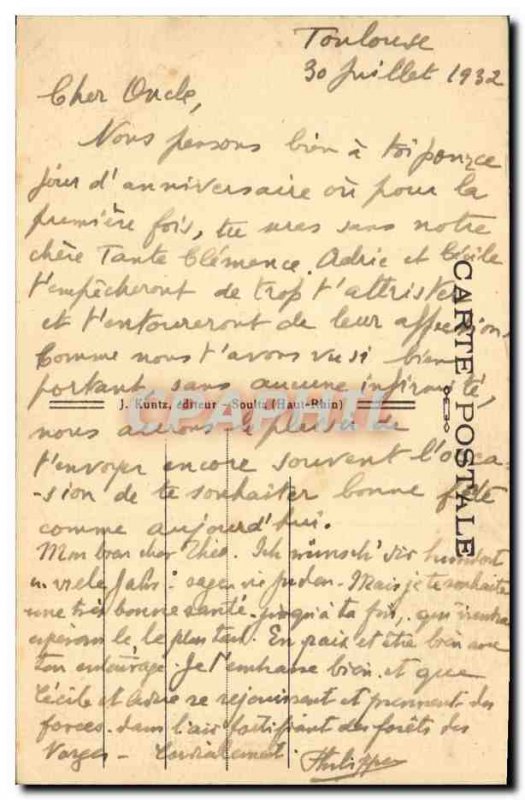 Toulouse
30 Juillet 1932
Cher Oncle,
Nous pensons bien à toi pour ce
jour d'anniversaire où pour la
première fois, tu seras sans notre
chère Tante Clémence. Adrie et Cécile
t'empêcheront de trop t'attrister
et t'entoureront de leur affection.
Comme nous t'avons vu si bien
portant, sans aucune infirmité,
J. Kuntz, éditeur - Soultz (Haut-Rhin)
CPAPHIL
nous aurons le plaisir de
t'envoyer encore souvent l'occa-
-sion de te souhaiter bonne fête
comme aujourd'hui.
CARTE POSTALE
Mon bien cher Théo. Ich wünsch' dir hundert
viele Jahr! sagen Mais je te souhaite
une très bonne santé, jusqu'à ta fin, qui viendra
espérons le le plus tard. En paix et être bien avec
ton entourage. Je t'embrasse bien et que
Cécile et Adrie se rejouissent et prennent des
forces dans l'air fortifiant des forêts des
Vosges - Cordialement.
Philippe